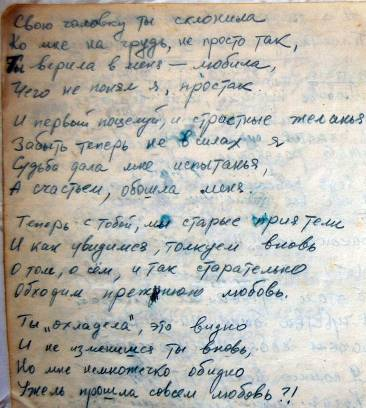 Свою головку ты склонила
Ко мне на грудь, не просто так,
Ты верила в меня — любила,
Чего не понял я, простак.
И первый поцелуй, и страстные желанья
Забыть теперь не в силах я
Судьба дала мне испытанья,
А счастьем, обошла меня.
Теперь с тобой, мы старые приятели
И как увидимся, толкуем вновь
О том, о сем, и так старательно
Обходим прежнюю любовь.
Ты „охладела", это видно
И не изменишся ты вновь,
Но мне немножечко обидно
Ужель прошла совсем любовь?!